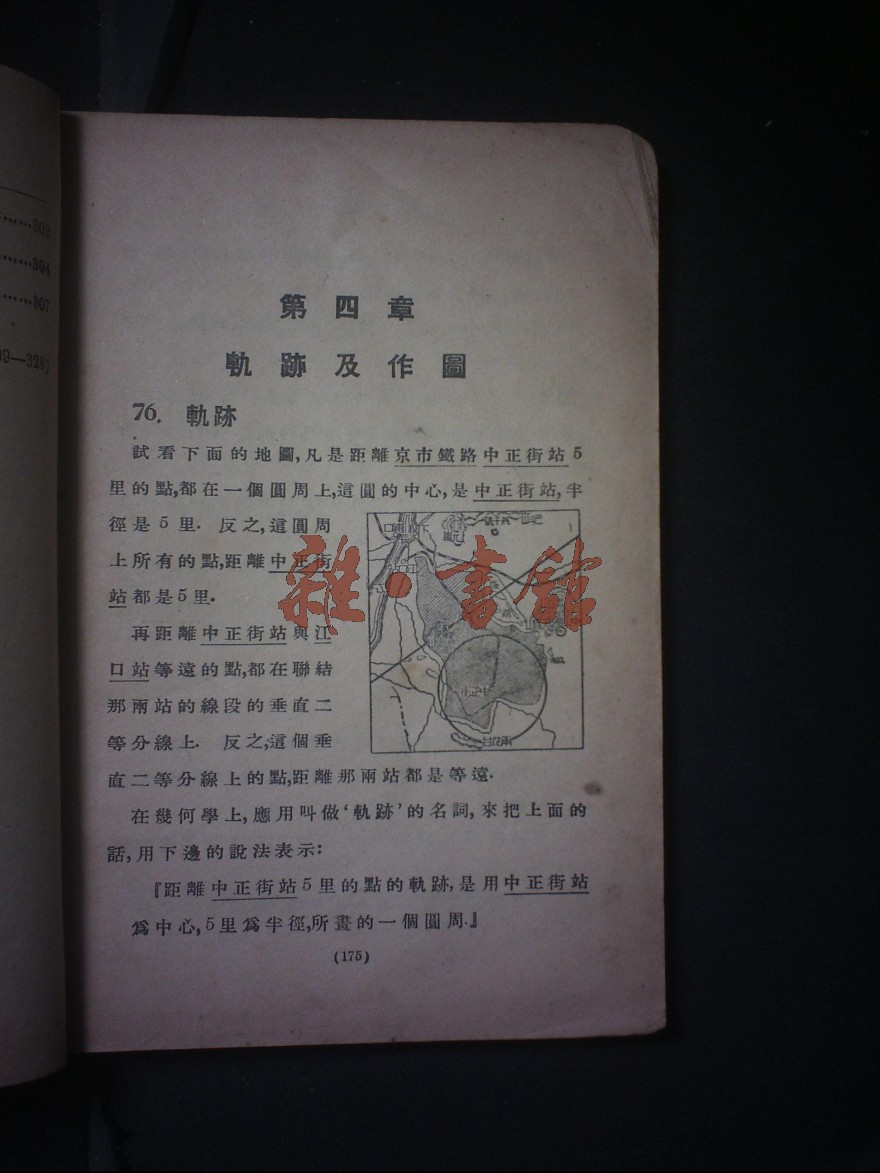 ……302
……304
……307
09—328)
第四章
軌跡及作圖
76. 軌跡
試看下面的地圖,凡是距離京市鐵路中正街站5
里的點,都在一個圓周上,這圓的中心,是中正街站,半
徑是5里. 反之,這圓周
上所有的點,距離中正街
站都是5里.
再距離中正街站與江
口站等遠的點,都在聯結
那兩站的線段的垂直二
等分線上. 反之,這個垂
直二等分線上的點,距離那兩站都是等遠.
在幾何學上,應用叫做‘軌跡’的名詞,來把上面的
話,用下邊的說法表示:
『距離中正街站5里的點的軌跡,是用中正街站
爲中心,5里爲半徑,所畫的一個圓周.』
(175)
雜·書館